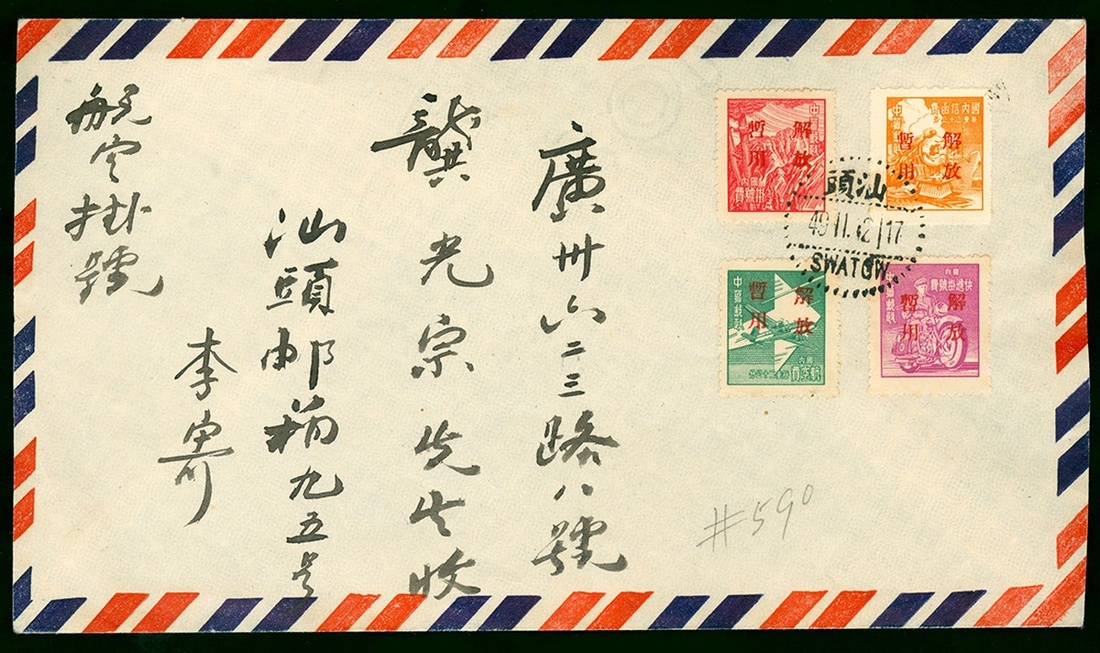 廣州六二三路八號
龔光宗先生收
汕頭邮箱九五号
李寄
航空掛號
解放
暫用
國內信函費
中華郵政
解放
暫用
國內
掛號費
中華郵政
解放
暫用
國內
航空費
中華郵政
解放
暫用
國內
快遞掛號費
中華郵政
汕頭
49 11. 12 17
SWATOW.
#590